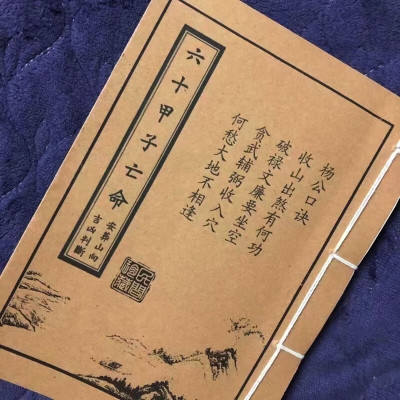 杨公口诀
收山出煞有何功
破禄文廉要坐空
贪武辅弼收入穴
何愁大地不相逢
六十甲子亡命
安葬山向
吉凶判断